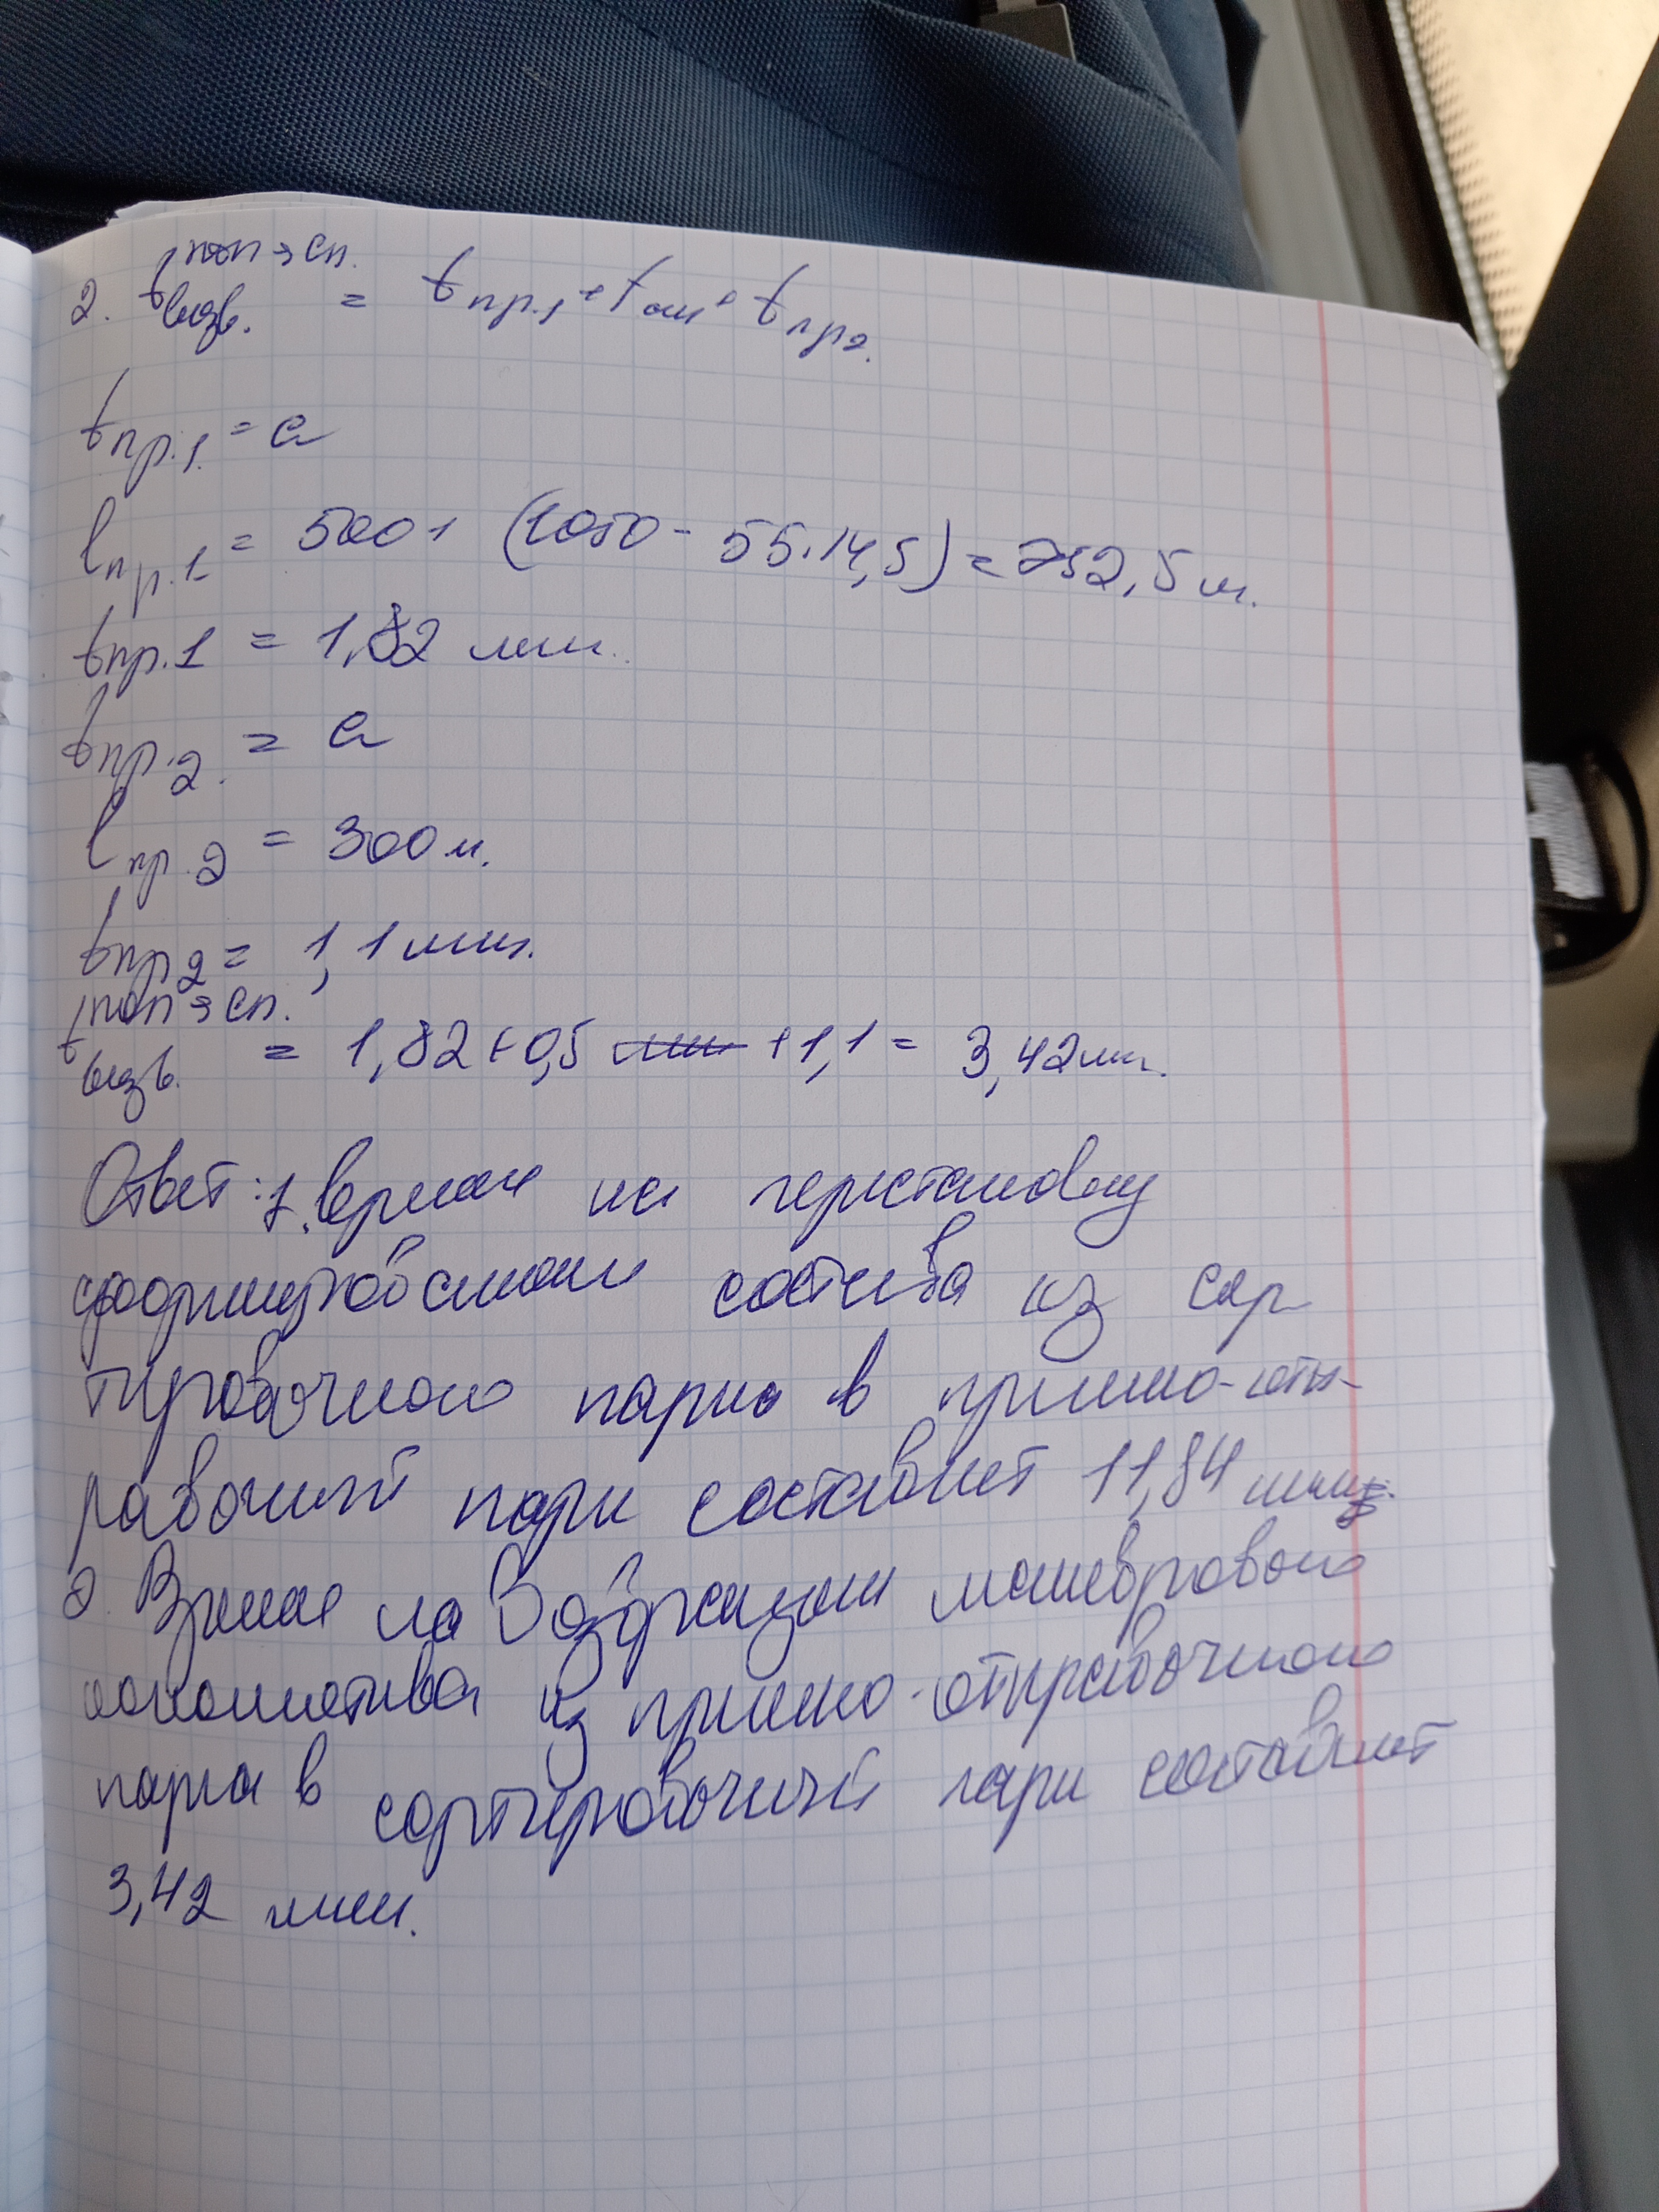 2. t возв. поп→сп. = t пр.1 + t ож + t пр2.
t пр.1. = a
l пр.1 = 500 + (1050 - 55·14,5) = 752,5 м.
t пр.1 = 1,82 мин.
t пр.2. = a
l пр.2 = 300 м.
t пр2 = 1,1 мин.
t возв. поп→сп. = 1,82 + 0,5 мин + 1,1 = 3,42 мин.
Ответ: 1. время на перестановку
сформированного состава из сор
тировочного парка в приемо-отп-
равочный парк составляет 11,84 мин.
2. Время на возвращении маневрового
локомотива из приемо-отправочного
парка в сортировочный парк составляет
3,42 мин.